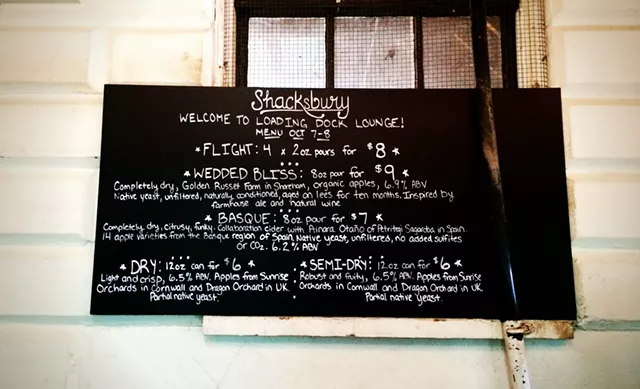 Shacksbury
WELCOME TO LOADING DOCK LOUNGE!
MENU OCT 7-8
* FLIGHT: 4 x 2oz pours for $8 *
* WEDDED BLISS: 8oz pour for $9 *
Completely dry, Golden Russet Farm in Shoreham, organic apples, 6.9% ABV
Native yeast, unfiltered, naturally conditioned, aged on lees for ten months. Inspired by
farmhouse ale and natural wine
* BASQUE: 8oz pour for $7 *
Completely dry, citrusy, funky. Collaboration cider with Ainara Otaño of Petritegi Sagardoa in Spain.
14 apple varieties from the Basque region of Spain. Native yeast, unfiltered, no added sulfites
or CO2. 6.2% ABV
* DRY: 12oz can for $6 *
Light and crisp, 6.5% ABV. Apples from Sunrise
Orchards in Cornwall and Dragon Orchard in UK.
Partial native yeast.
* SEMI-DRY: 12oz can for $6 *
Robust and fruity, 6.5% ABV. Apples from Sunrise
Orchards in Cornwall and Dragon Orchard in UK.
Partial native yeast.